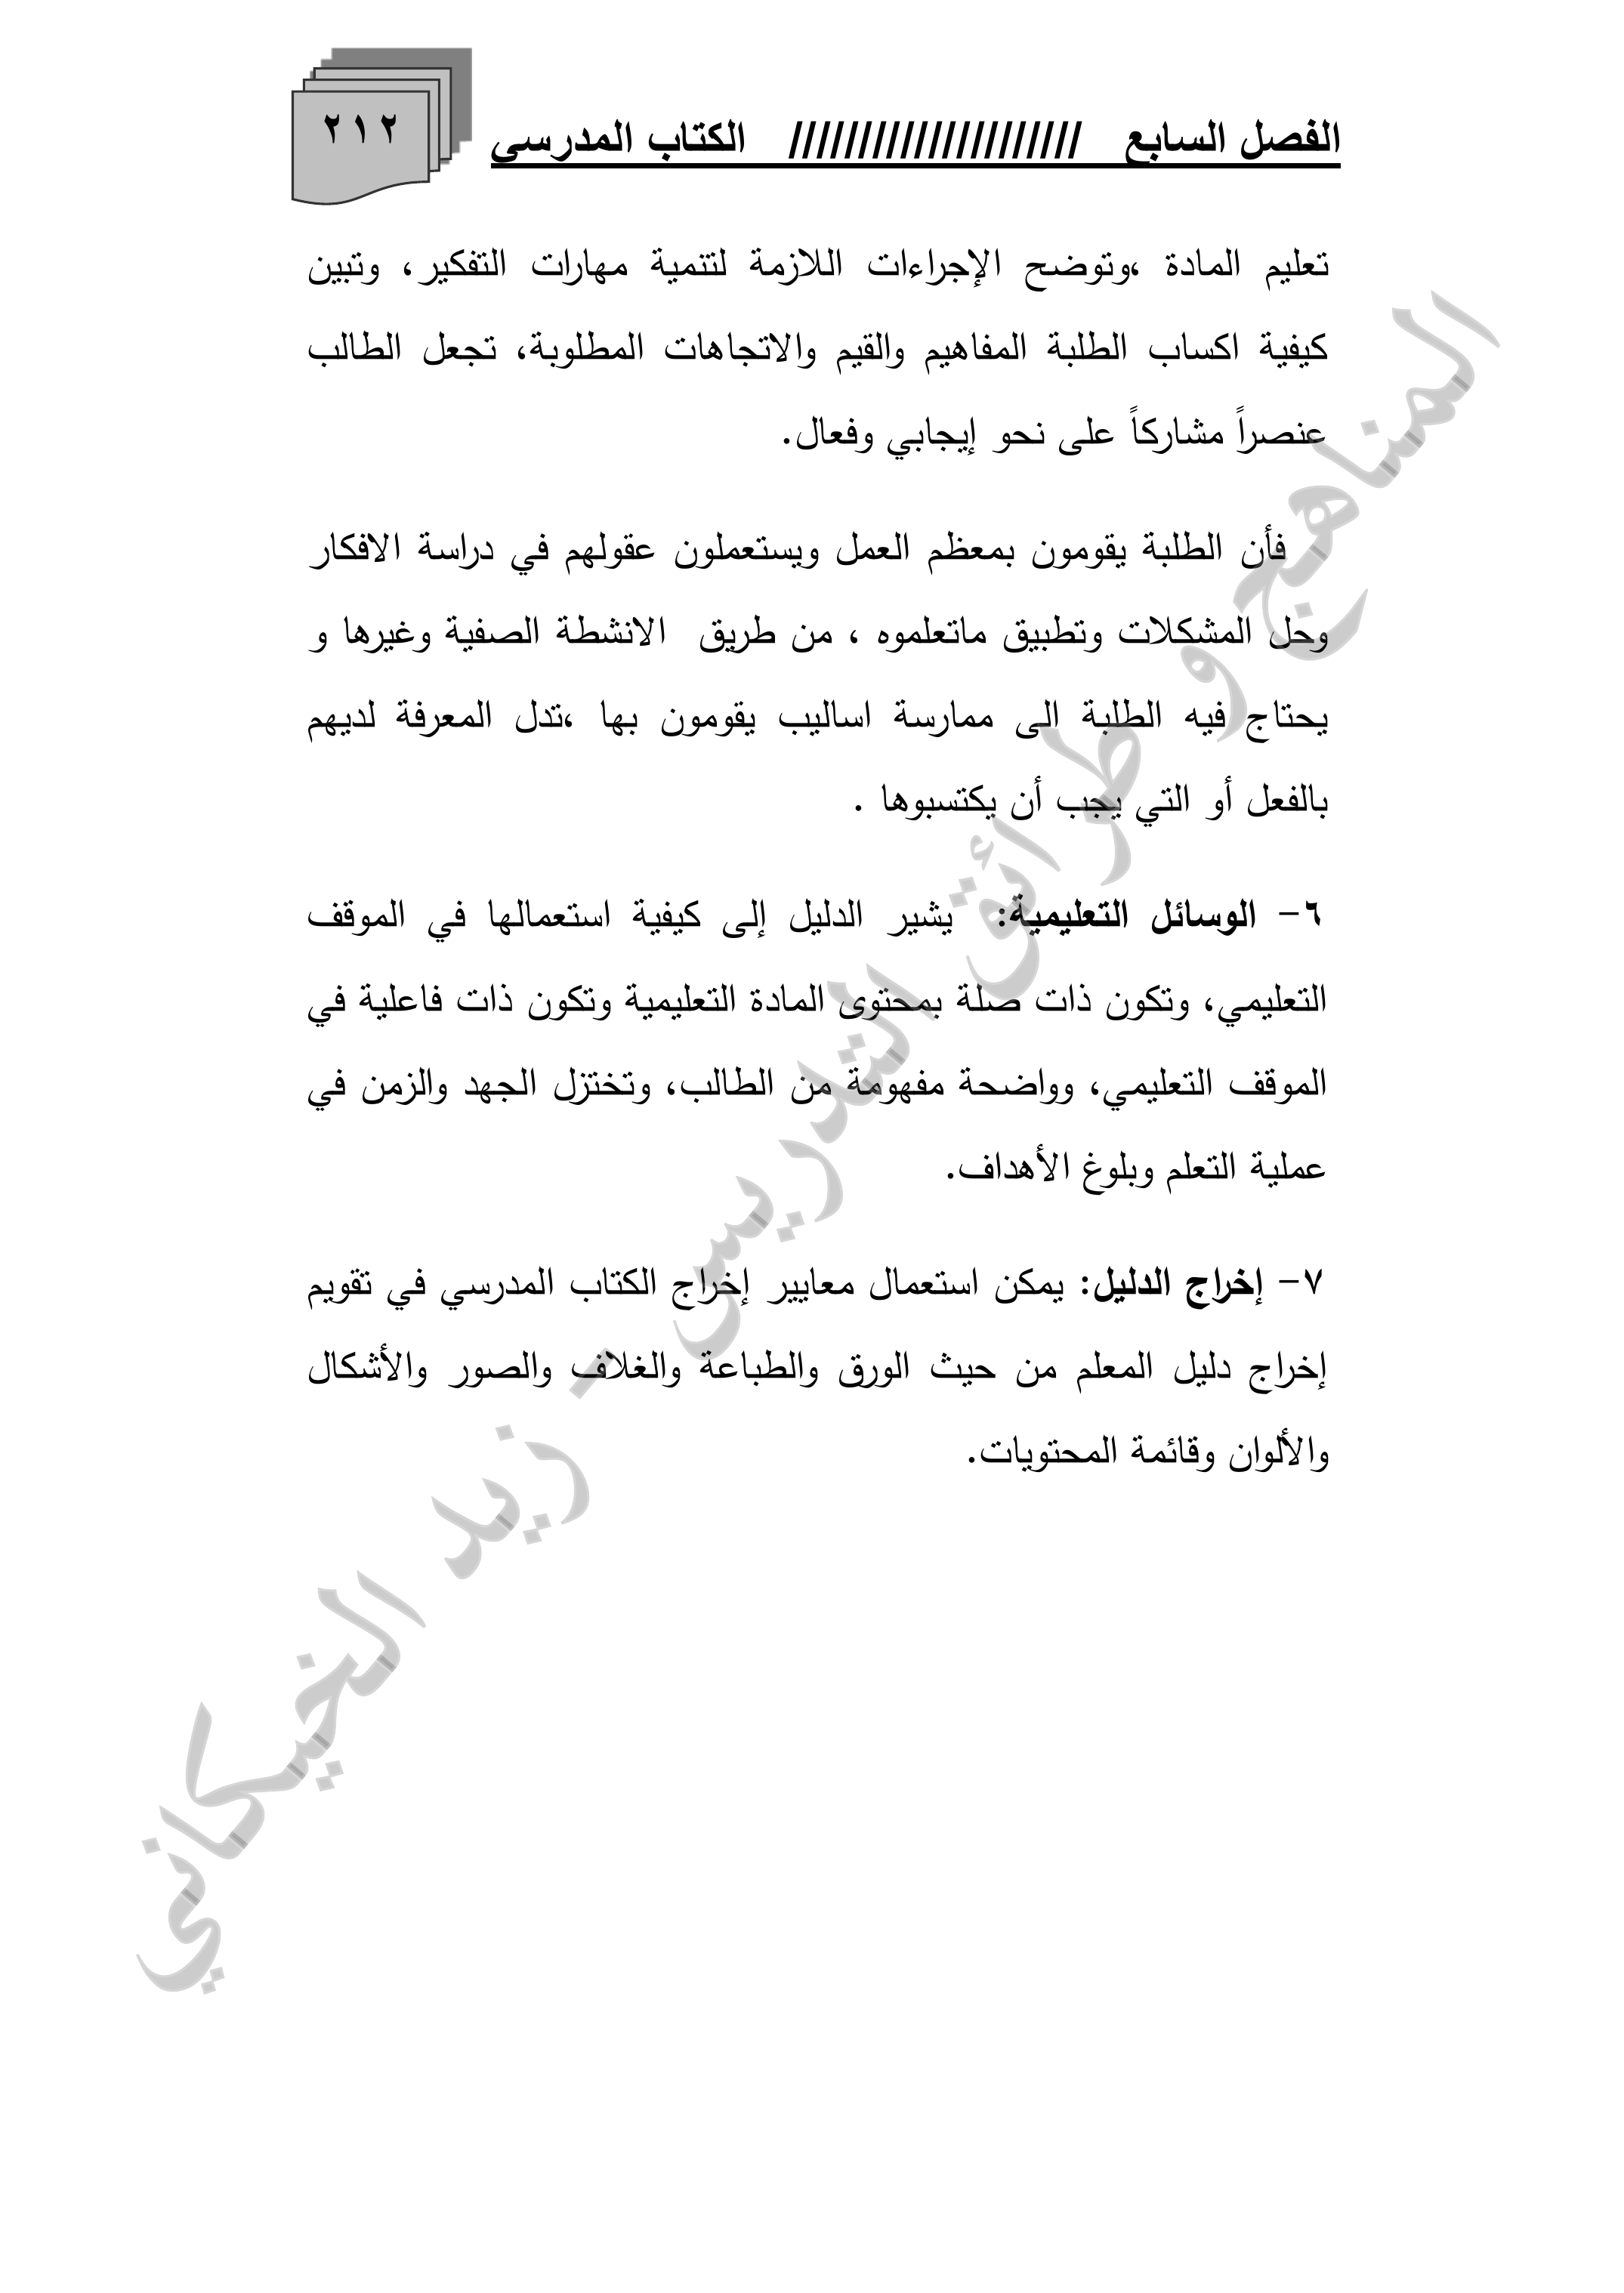 الفصل السابع ///////////////////// الكتاب المدرسي
٢١٢
تعليم المادة ،وتوضح الإجراءات اللازمة لتنمية مهارات التفكير، وتبين
كيفية اكساب الطلبة المفاهيم والقيم والاتجاهات المطلوبة، تجعل الطالب
عنصراً مشاركاً على نحو إيجابي وفعال.
فأن الطلبة يقومون بمعظم العمل ويستعملون عقولهم في دراسة الافكار
وحل المشكلات وتطبيق ماتعلموه ، من طريق الانشطة الصفية وغيرها و
يحتاج فيه الطلبة الى ممارسة اساليب يقومون بها ،تدل المعرفة لديهم
بالفعل أو التي يجب أن يكتسبوها .
٦- الوسائل التعليمية: يشير الدليل إلى كيفية استعمالها في الموقف
التعليمي، وتكون ذات صلة بمحتوى المادة التعليمية وتكون ذات فاعلية في
الموقف التعليمي، وواضحة مفهومة من الطالب، وتختزل الجهد والزمن في
عملية التعلم وبلوغ الأهداف.
٧- إخراج الدليل: يمكن استعمال معايير إخراج الكتاب المدرسي في تقويم
إخراج دليل المعلم من حيث الورق والطباعة والغلاف والصور والأشكال
والألوان وقائمة المحتويات.
المناهج و طرائق التدريس - زيد الخيكاني